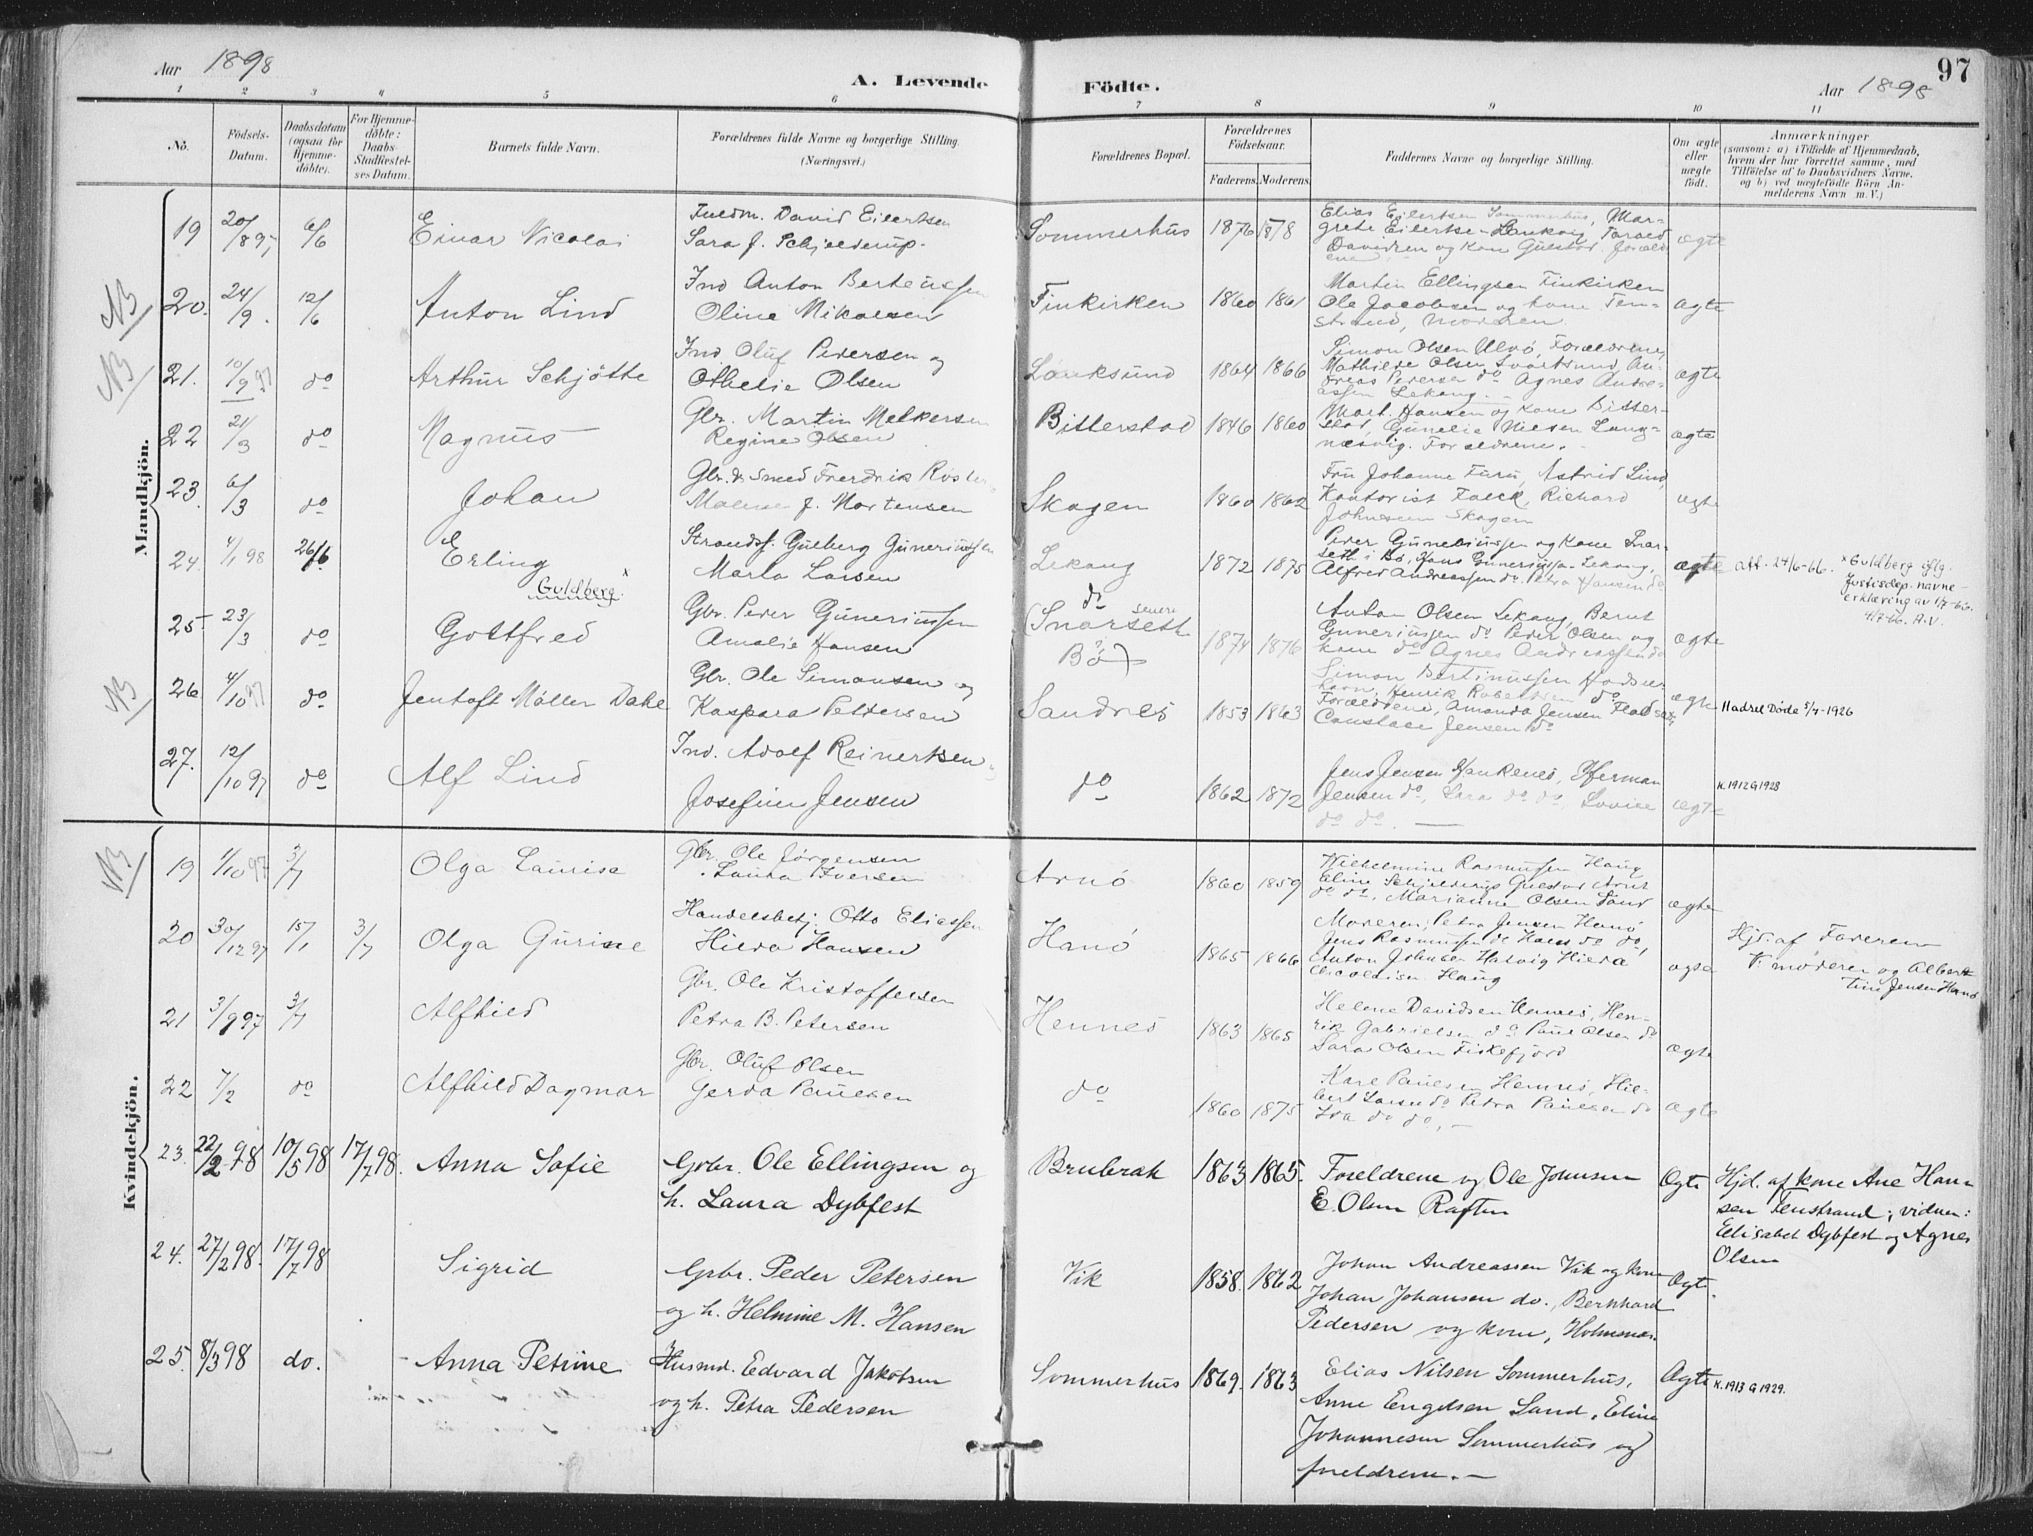 Aar 1898
A. Levende Födte.
Aar 1898
97
1 2 3 4 5 6 7 8 9 10 11
No.
Födsels-Datum.
Daabsdatum (ogsaa for Hjemme-döbte).
For Hjemme-döbte: Daabs-Stadfæstel-ses Datum.
Barnets fulde Navn.
Forældrenes fulde Navne og borgerlige Stilling. (Næringsvei.)
Forældrenes Bopæl.
Forældrenes Födselsaar.
Faderens. Moderens.
Faddernes Navne og borgerlige Stilling.
Om ægte eller uægte födt.
Anmærkninger
(saasom: a) i Tilfælde af Hjemmedaab,
hvem der har forrettet samme, med
Tilföielse af to Daabsvidners Navne.
og b) ved uægtefödte Börn An-
melderens Navn m. V.)
Mandkjön.
19 20/8 97 6/6 Einar Nicolai
David Eilertsen
Sara J. Schjelderup
Sommerhus 1876 1878
Elias Eilertsen Sommerhus, Mar-
grete Eilertsen
Davidsen og Kone
ægte
NB 20. 24/9. 12/6 Anton Lind
Ind Anton
Oline Mikalsen
Finkirken 1860 1861
Martin Ellingsen Finkirken
Ole Jacobsen og kone Ten-
strand, Moderen
ægte
NB 21. 10/9 97 do Arthur Schjötte
Ind Oluf Pedersen og
Othelie Olsen
1864 1866
Simon Olsen Ulvö, Forældrene,
Mathilde Olsen An-
dreas Pedersen do Agnes Andre-
assen Lekang.
ægte
22 21/3 do Magnus
Gbr. Martin Melkersen
Regine Olsen
Bitterstad 1846 1860
Mart. Hansen og kone Bitter-
stad, Nilsen Lang-
næsvig. Forældrene.
ægte
23. 6/3 do Johan
Gbr. & Smed Fredrik
Mortensen
Skagen 1860 1862
Fru Johanne Furu, Astrid Lind,
Kontorist Falck, Richard
Johnsen Skagen
ægte
24. 4/1 98 26/6. Erling
Guldberg. x
Strands. Gulberg Guneriussen
Marta Larsen
Lekang 1872 1875
Peder Guneriussen og kone Snar-
seth i Bö, Hans Guneriussen Lekang,
Alfred Andreassen do. Petra Hansen do
ægte att. 24/6-66.
x Guldberg iflg.
Justisdep. navne-
erklæring av 1/7-66.
4/7-66. A.V.
25. 23/3 do Gottfred
Gbr. Peder Guneriussen
Amalie Hansen
do
Snarseth senere
Bö
1874 1876
Anton Olsen Lekang, Bernt
Guneriussen do Peder Olsen og
kone do Agnes Andreassen do
ægte
NB 26 4/10 97 do Jentoft Möller Dahl
Gbr. Ole Simonsen og
Kaspara Pettersen
Sandnes 1853 1863
Simon Bertinussen
Henrik Robertsen do
Forældrene, Amanda Jensen
Jensen do
ægte Hadsel Døde 5/7-1926
27. 12/10 97 do Alf Lind
Ind. Adolf Reinertsen
Josefine Jensen
do 1862 1872
Jens Jensen Hankenes, Herman
Jensen do, Sara do do, Lovise
do do. —
ægte K. 1912 G 1928
Kvindekjön.
NB 19 1/10 97 3/7 Olga Laurisa
Gbr. Ole Jörgensen
Laura Iversen
Arnö 1860 1859
Wilhelmine Rasmussen Haug
Eline Schjelderup Gulstad
do do, Marianne Olsen Sand
ægte
20 30/12 97 15/1 3/7 Olga Gurine
Handelsbetj. Otto Eliassen
Hilda Hansen
Hanö 1865 1866
Moderen, Petra Jensen Hanö,
Jens Rasmussen do Hans do do,
Anton Johnsen Hatvig Hilda
Nicolaisen Haug
ægte
Hjd. af Faderen
V. moderen og Albert
tine Jensen Hanö
21 3/9 97 3/7 Alfhild
Gbr. Ole Kristoffersen
Petra B. Petersen
Hennes 1863 1865
Helene Davidsen Hennes, Hen-
rik Gabrielsen do Paul Olsen do
Sara Olsen Fiskefjord
ægte
22 7/2 do Alfhild Dagmar
Gbr. Oluf Olsen
Gerda Paulsen
do 1860 1875
Karl Paulsen Hennes, Hil-
bert Larsen do Petra Paulsen do
Ida do do. —
ægte
23. 22/2 98 10/5 98 17/7 98. Anna Sofie
Grbr. Ole Ellingsen og
h. Laura Dybfest
Brubrak 1863 1865.
Foreldrene og Ole Johnsen
E. Olsen Raften
Ægte
Hjd. af kone Ane Han-
sen Tenstrand; vidner:
Elisabet Dybfest og Agnes
Olsen
24. 27/2 98. 17/7 98 Sigrid
Grbr. Peder Petersen
og h. Helmine M. Hansen
Vik 1858. 1862
Johan Andreassen Vik og kone
Johan Johansen do., Bernhard
Pedersen og kone, Holmsnes.
Ægte.
25. 8/3 98 do. Anna Petrine
Husmd. Edvard Jakobsen
og h. Petra Pedersen
Sommerhus 1869. 1863
Elias Nilsen Sommerhus,
Anne Engelsen Sand, Eline
Johannesen Sommerhus og
foreldrene. —
Ægte K. 1913 G 1929.